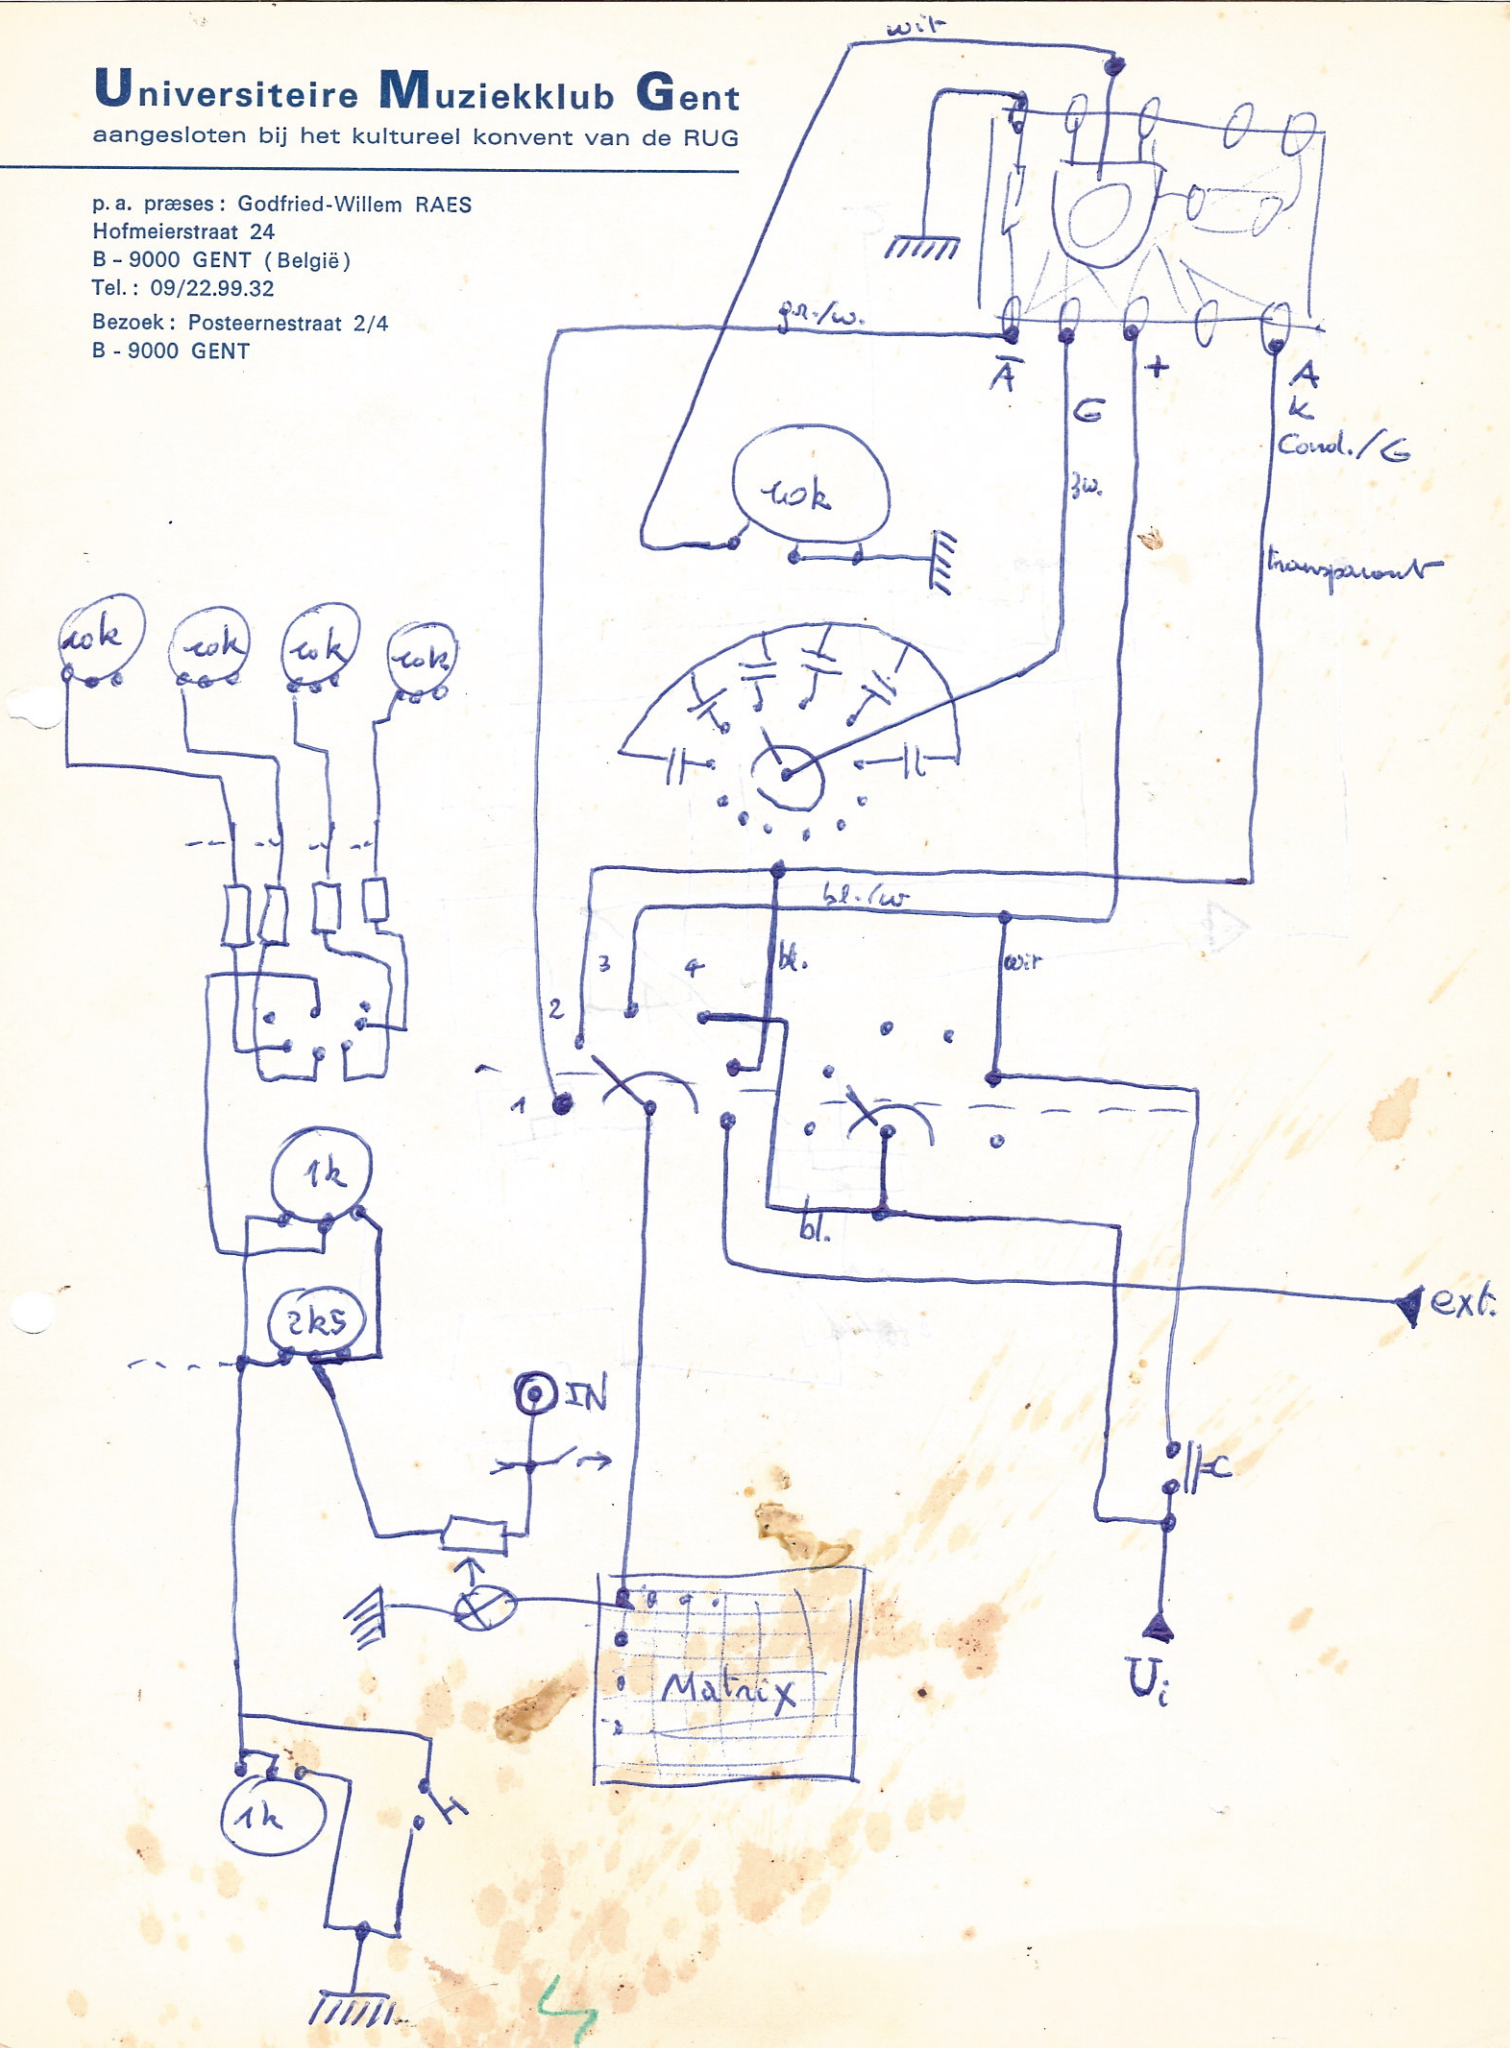 Universiteire Muziekklub Gent
aangesloten bij het kultureel konvent van de RUG
p.a. præses: Godfried-Willem RAES
Hofmeierstraat 24
B - 9000 GENT (België)
Tel.: 09/22.99.32
Bezoek: Posteernestraat 2/4
B - 9000 GENT
wit
gr./w.
A
G
+
A
K
Cond./G
zw.
transparant
10k
10k
10k
10k
10k
bl./w
bl.
wit
1
2
3
4
bl.
ext.
1k
2k5
IN
C
Ui
Matrix
1k